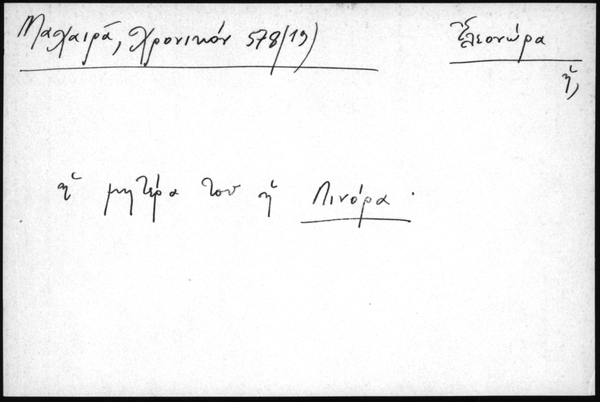 Μαχαιρά, Χρονικόν 578/19) Ἐλεονώρα
ἡ,
ἡ μητέρα του ἡ Λινόρα.